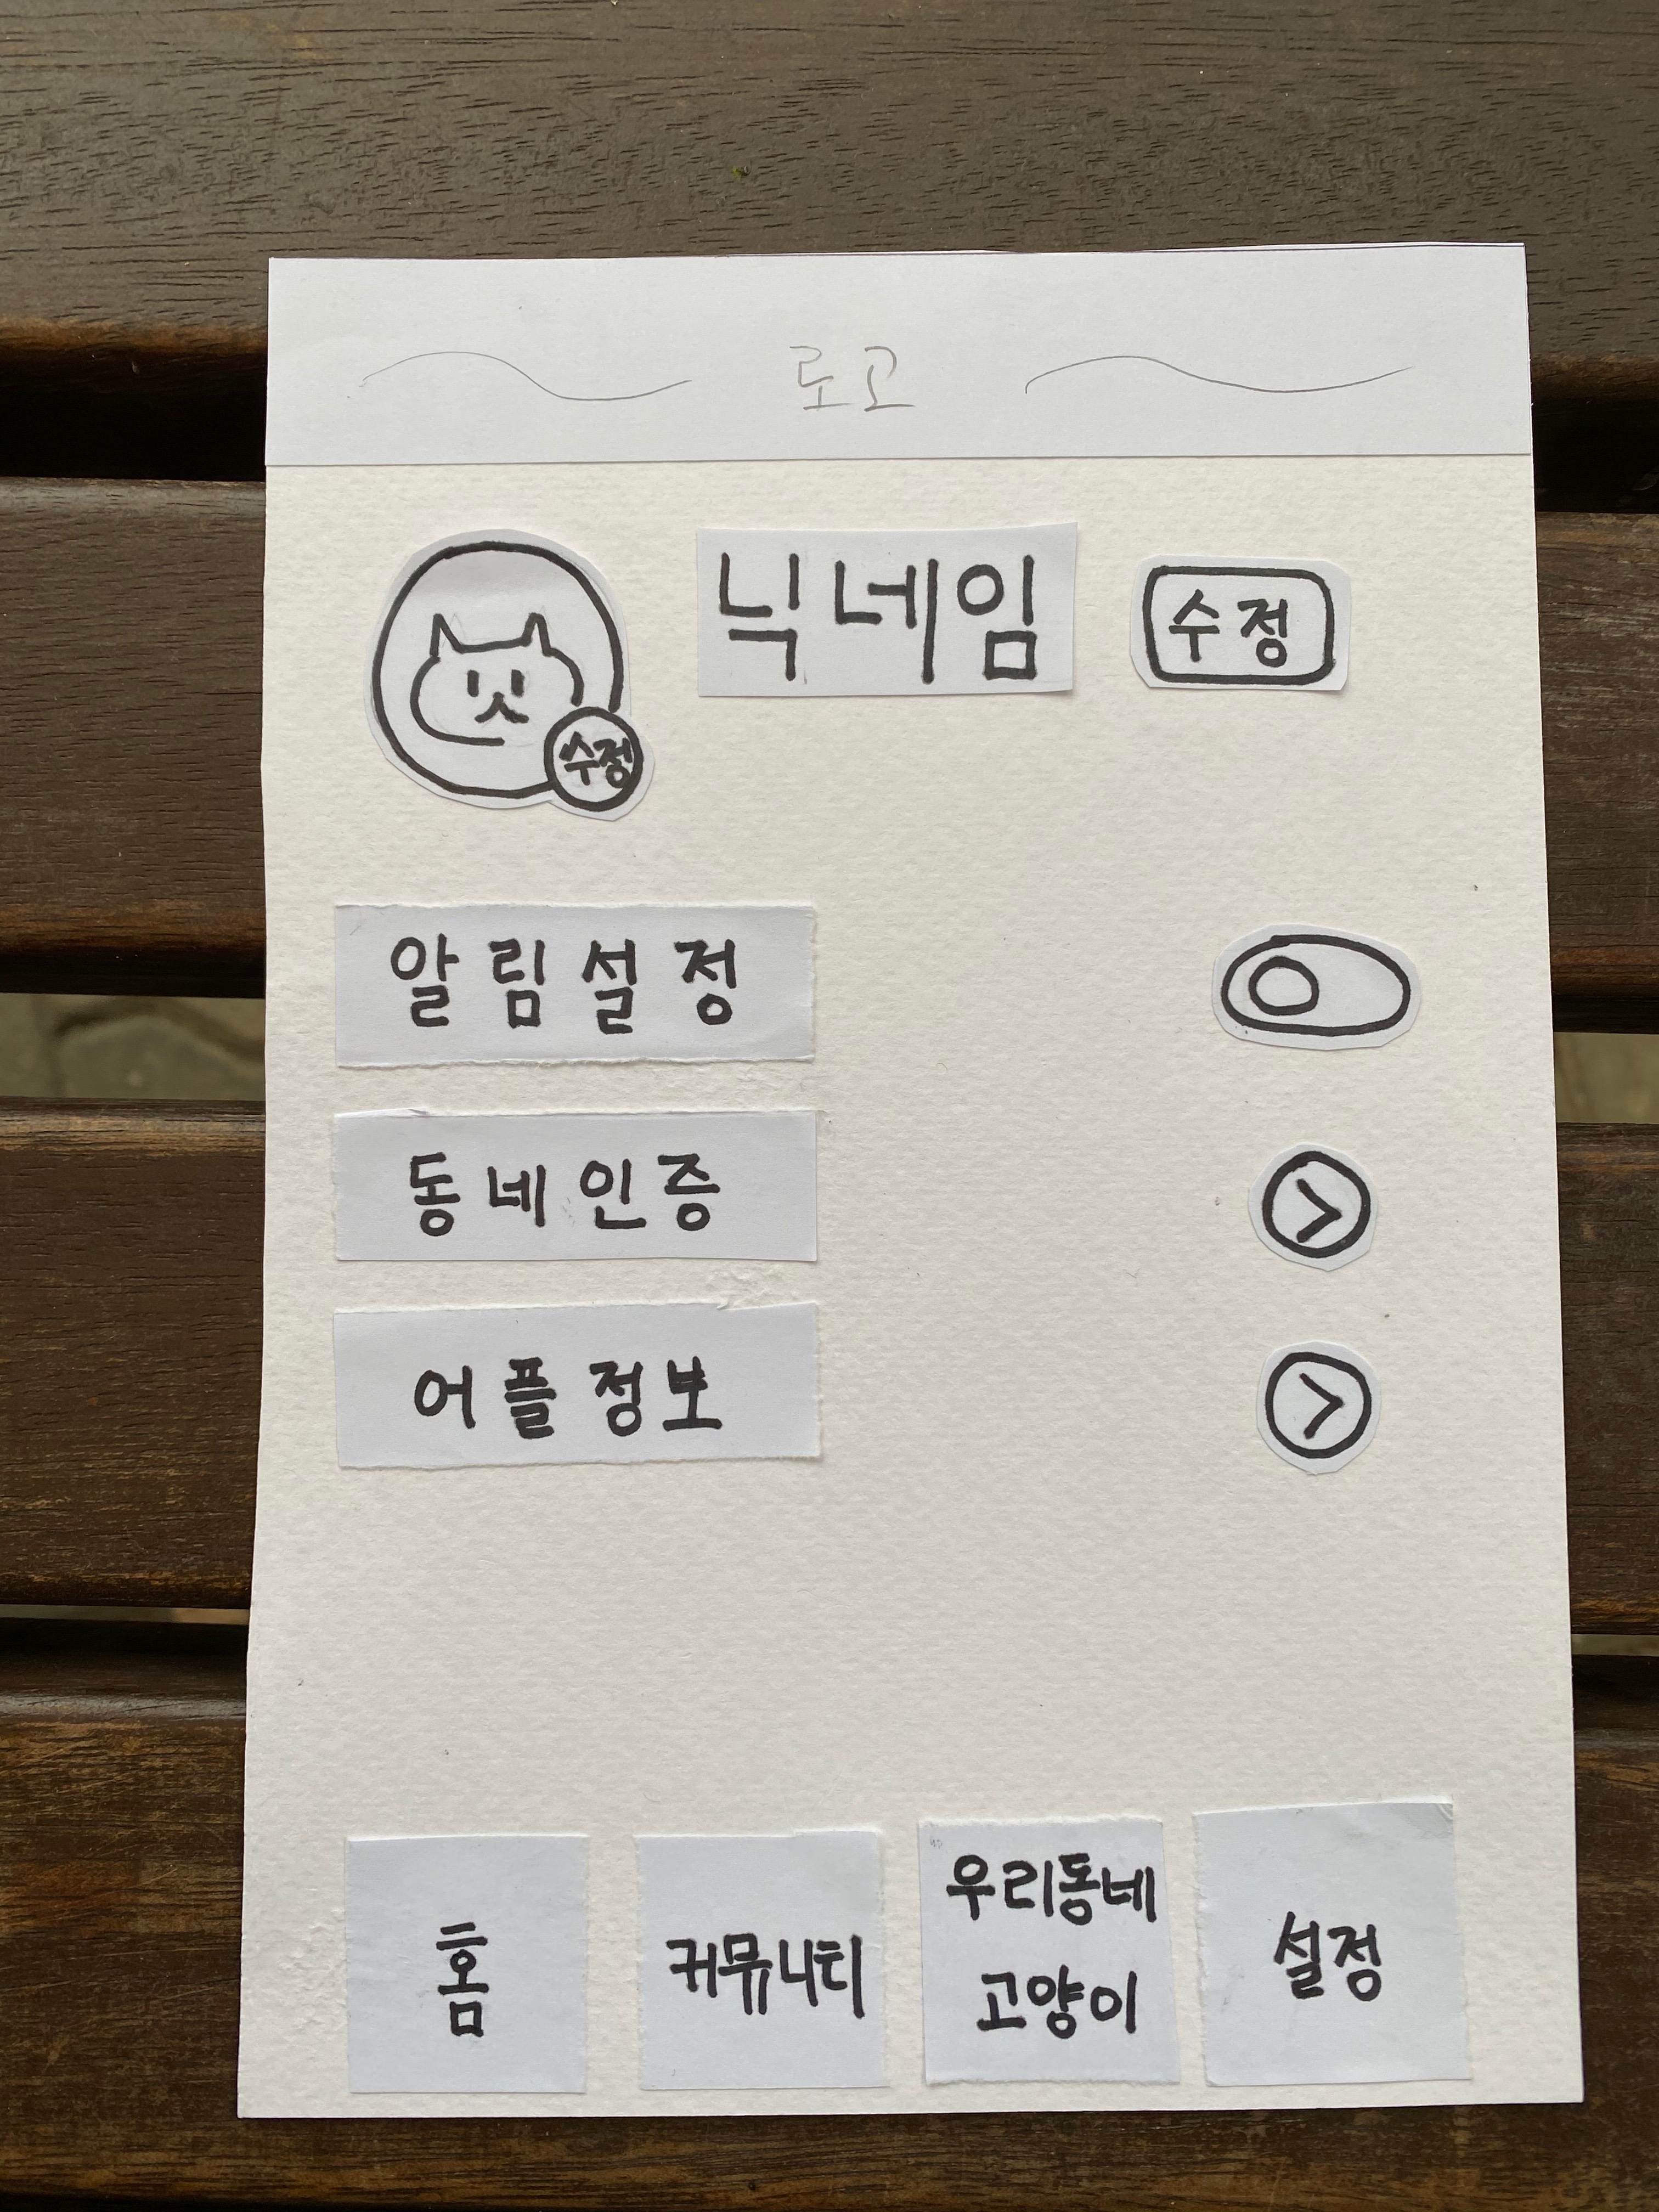 로고
닉네임
수정
수정
알림설정
동네인증
어플정보
홈
커뮤니티
우리동네
고양이
설정